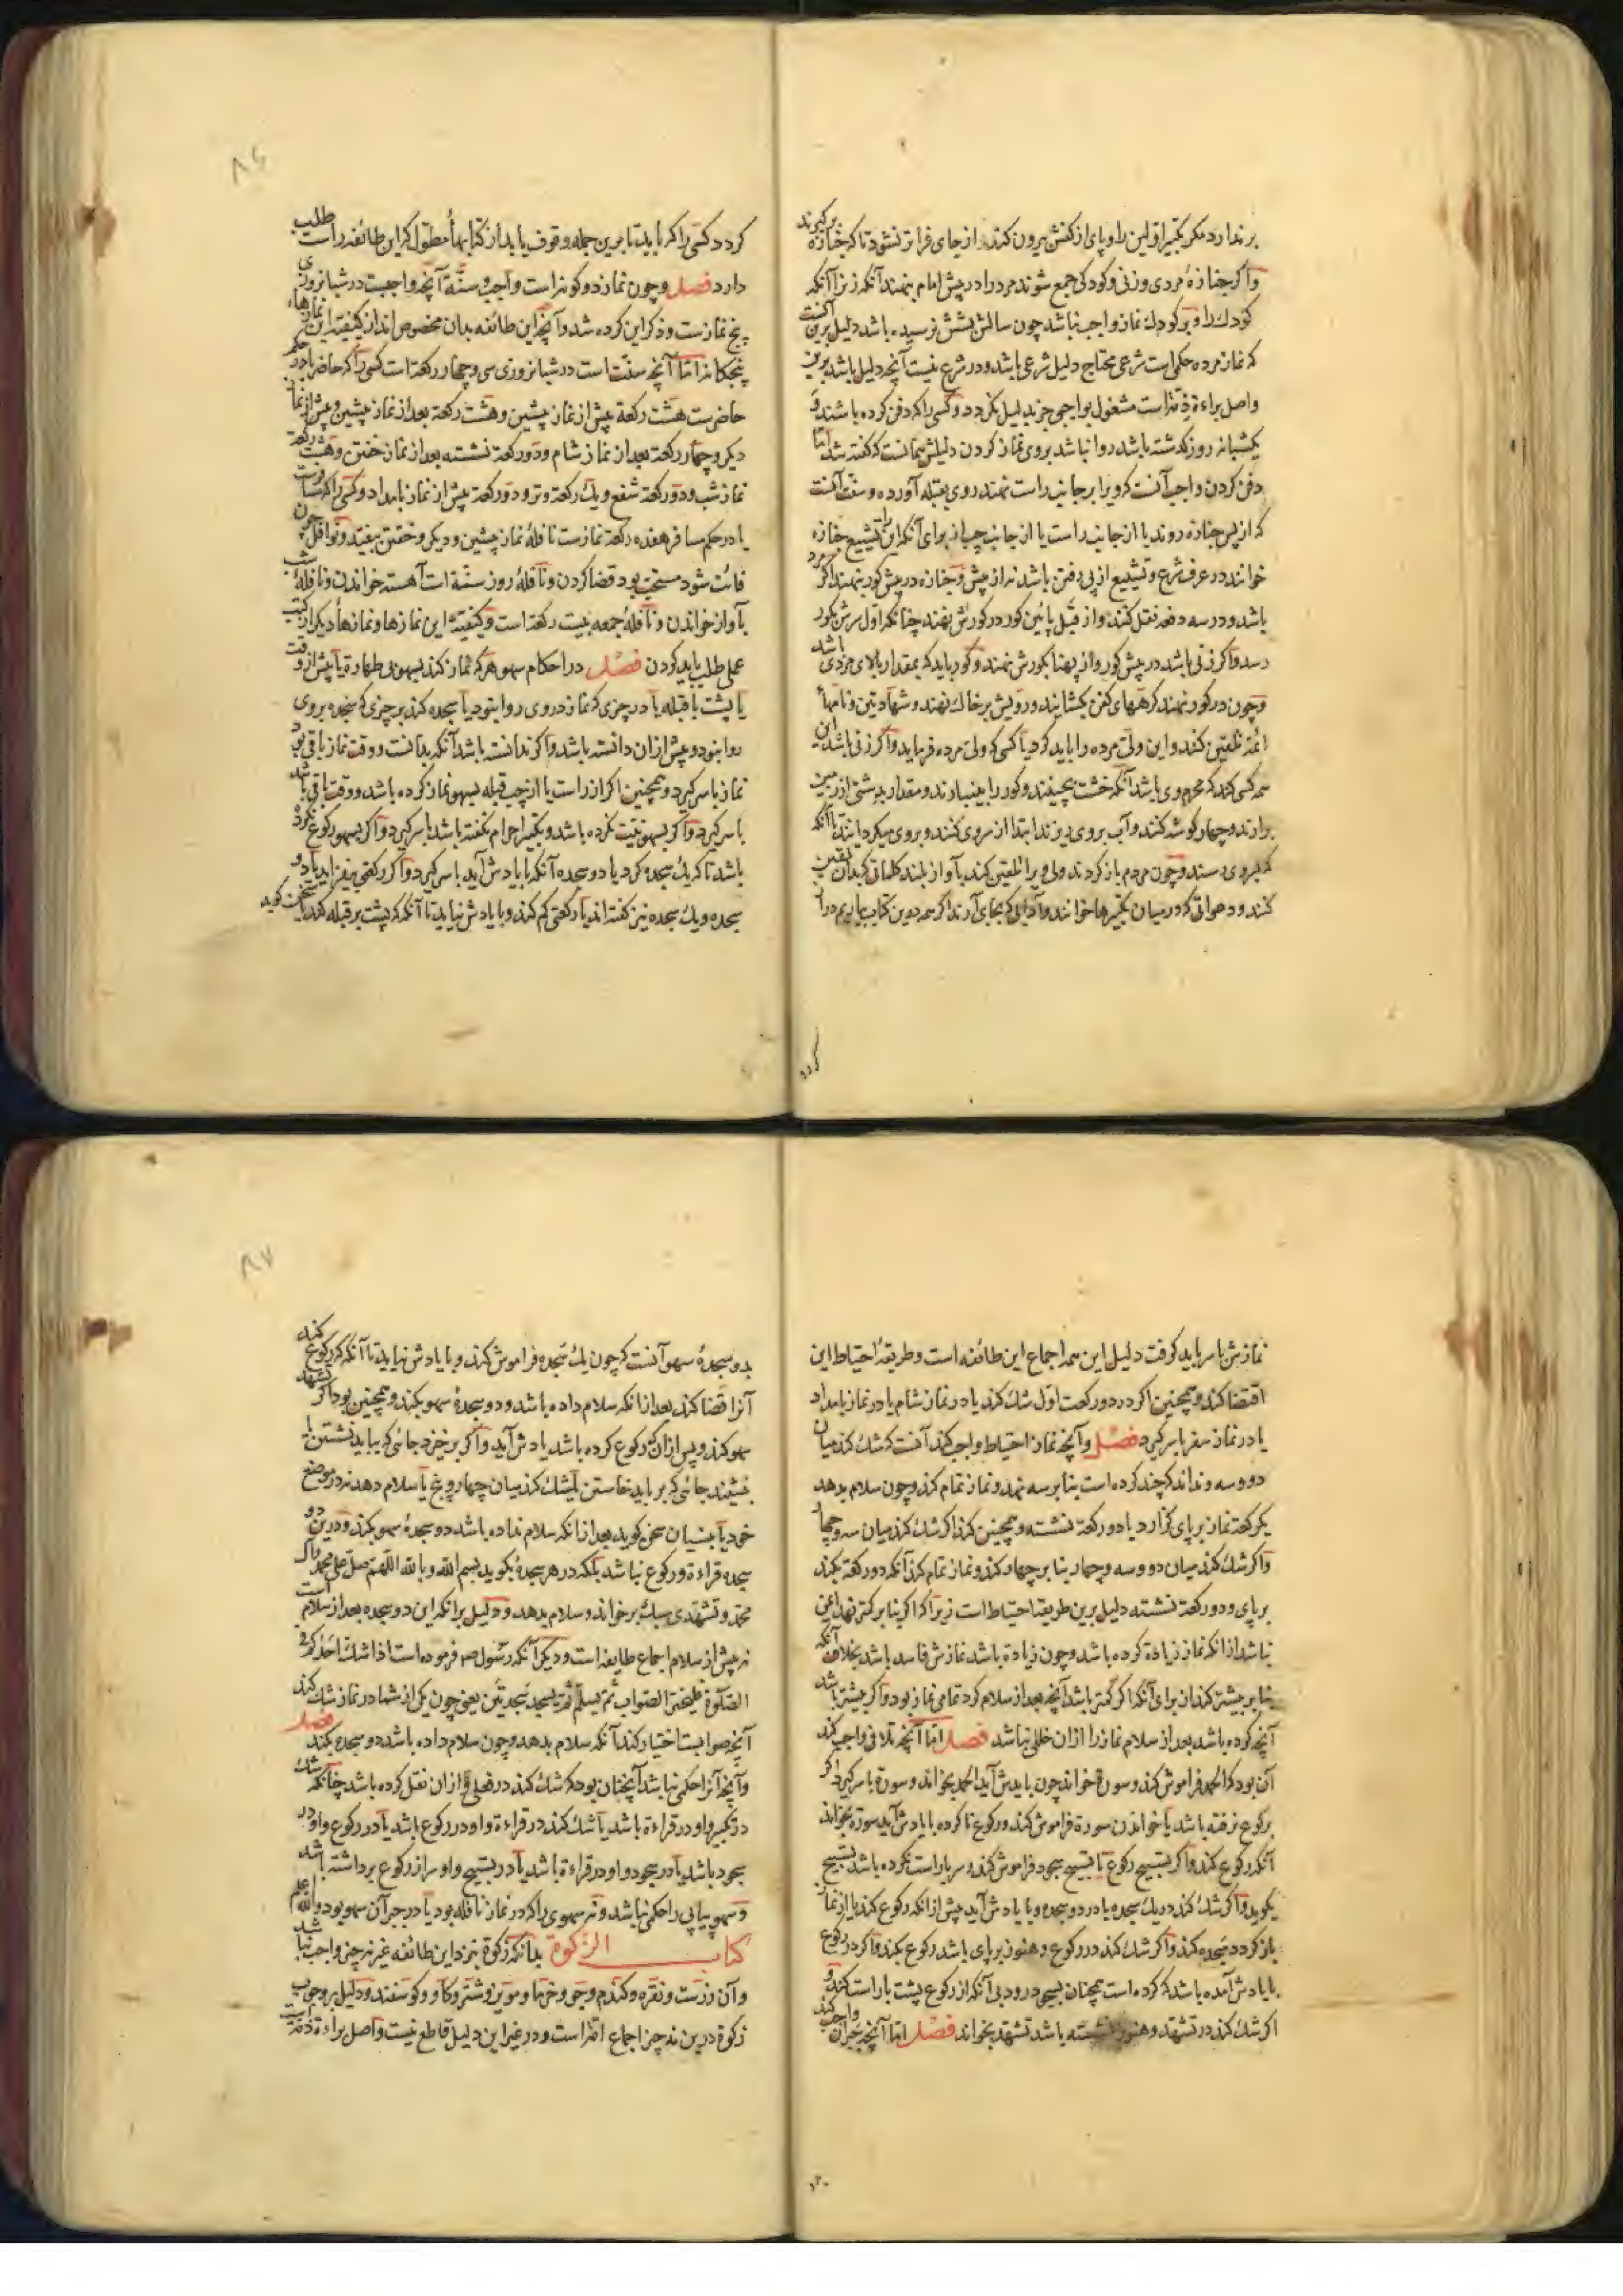 بر ندارد مکر تکبیر اولین را و پای از کفش بیرون کند و از جای فراتر نشود تا که جنازه برکیرند
و اکر جنازهٔ مردی و زنی و کودکی جمع شوند مرد را در پیش امام بنهند آنکه زن را آنکه
کودک را و بر کودک نماز واجب نباشد چون سالش بشش نرسیده باشد دلیل برین آنست
که نماز مرده حکمی است شرعی محتاج دلیل شرعی باشد و در شرع نیست آنچه دلیل باشد برین
و اصل براءة ذمتراست مشغول بواجبی جز بدلیل نکردد و کسی را که دفن کرده باشند و
یکشبانه روز کذشته باشد روا نباشد بر وی نماز کردن دلیلش همانست که کفته شد اما
دفن کردن واجب آنست که ویرا بر جانب راست نهند روی بقبله آورده و سنت آنست
که از پس جنازه روند یا از جانب راست یا از جانب چپ از برای آنکه این را تشییع جنازه
خوانند در عرف شرع و تشییع از پی رفتن باشد نه از پیش و جنازه در پیش کور بنهند اکر مرد
باشد و در سه دفعه نقل کنند و از قبل پائین کور در کورش نهند چنانکه اول سرش بکور
رسد و اکر زنی باشد در پیش کور و از پهنا بکورش نهند و کور باید که بمقدار بالای مردی باشد
و چون در کور نهند کرههای کفن بکشایند و رویش بر خاک نهند و شهادتین و نامهاء
ائمه تلقین کند و این ولی مرده را باید کرد یا کسی که ولی مرده فرماید و اکر زنی باشد این
همه کسی کند که محرم وی باشد آنکه خشت بچینند و کور را بینبارند و مقدار بدستی از زمین
بردارند و چهار کوشه کنند و آب بر وی ریزند ابتدا از سر وی کنند و بر وی میکردانند تا آنکه
که بروی رسند و چون مردم باز کردند ولی ویرا تلقین کند بآواز بلند کلماتی که بدان تلقین
کنند و دعواتی که در میان تکبیرها خوانند و آدابی که بجای آرند اکر همه درین کتاب بیاریم دراز
کردد
کردد کسی را که باید تا برین جمله وقوف یابد از کتابهاء مطول که این طائفه راست طلب
دارد فصل و چون نماز دو کونه است واجب و سنة آنچه واجبست در شبانروزی
پنج نمازست و ذکر این کرده شد و آنچه این طائفه بدان مخصوص اند از کیفیة این نمازهاء
پنجکانه اما آنچه سنت است در شبانروزی سی و چهار رکعة است کسی را که حاضر یا در حکم
حاضرست هشت رکعة پیش از نماز پیشین و هشت رکعة بعد از نماز پیشین و پیش از نماز
دیکر و چهار رکعة بعد از نماز شام و دو رکعة نشسته بعد از نماز خفتن و هشت رکعة
نماز شب و دو رکعة شفع و یک رکعة وتر و دو رکعة پیش از نماز بامداد و کسی را که مسافرست
یا در حکم مسافر هفده رکعة نمازست نافلهٔ نماز پیشین و دیکر و خفتن بیفتد و نوافل چون
فائت شود مستحب بود قضا کردن و نافلهٔ روز سنة است آهسته خواندن و نافلهٔ شب
بآواز خواندن و نافلهٔ جمعه بیست رکعة است و کیفیة این نمازها و نمازهاء دیکر از کتب
عملی طلب باید کردن فصل در احکام سهو هر که نماز کند بسهو بی طهارة یا پیش از وقت
یا پشت با قبله یا در چیزی که نماز در وی روا نبود یا سجده کند بر چیزی که سجده بر وی
روا نبود و پیش از ان دانسته باشد و اکر ندانسته باشد آنکه بدانست و وقت نماز باقی بود
نماز باسر کیرد و همچنین اکر از راست یا از چپ قبله بسهو نماز کرده باشد و وقت باقی باشد
باسر کیرد و اکر بسهو نیت نکرده باشد و تکبیر احرام نکفته باشد باسر کیرد و اکر بسهو رکوع نکرده
باشد تا که یک سجده کرد یا دو سجده آنکه با یادش آید باسر کیرد و اکر رکعتی بیفزاید یا دو
سجده و یک سجده نیز کفته اند یا رکعتی کم کند و با یادش نیاید تا آنکه که پشت بر قبله کند یا سخن کوید
۸۶
نمازش باسر باید کرفت دلیل این همه اجماع این طائفه است و طریقهٔ احتیاط این
اقتضا کند و همچنین اکر در دو رکعت اول شک کند یا در نماز شام یا در نماز بامداد
یا در نماز سفر باسر کیرد فصل و آنچه نماز احتیاط واجب کند آنست که شک کند میان
دو و سه و نداند که چند کرده است بنا بر سه نهد و نماز تمام کند و چون سلام بدهد
یک رکعة نماز بر پای کزارد یا دو رکعة نشسته و همچنین کند اکر شک کند میان سه و چهار
و اکر شک کند میان دو و سه و چهار بنا بر چهار کند و نماز تمام کند آنکه دو رکعة بکند
بر پای و دو رکعة نشسته دلیل برین طریقهٔ احتیاط است زیرا که اکر بنا بر کمتر نهد ایمن
نباشد از انکه نماز زیادة کرده باشد و چون زیادة باشد نمازش فاسد باشد بخلاف آنکه
بنا بر بیشتر کند از برای آنکه اکر کمتر باشد آنچه بعد از سلام کرد تمامی نماز بود و اکر بیشتر باشد
آنچه کرده باشد بعد از سلام نماز را از ان خللی نباشد فصل اما آنچه تلافی واجب کند
آن بود که الحمد فراموش کند و سورة خواند چون با یادش آید الحمد بخواند و سورة باسر کیرد اکر
برکوع نرفته باشد یا خواندن سورة فراموش کند و رکوع نا کرده با یادش آید سورة بخواند
آنکه رکوع کند و اکر تسبیح رکوع یا تسبیح سجود فراموش کند و سر باز راست نکرده باشد تسبیح
بکوید و اکر شک کند در یک سجده یا در دو سجده و با یادش آید پیش از انکه رکوع کند یا از نماز
باز کردد سجده کند و اکر شک کند در رکوع و هنوز بر پای باشد رکوع بکند و اکر در رکوع
با یادش آمده باشد که کرده است همچنان بسجود رود بی آنکه از رکوع پشت باز راست کند و
اکر شک کند در تشهد و هنوز نشسته باشد تشهد بخواند فصل اما آنچه جبران واجب کند
بدو سجدهٔ سهو آنست که چون یک سجده فراموش کند و با یادش نیاید تا آنکه که رکوع کند
آنرا قضا کند بعد از انکه سلام داده باشد و دو سجدهٔ سهو بکند و همچنین بود اکر تشهد
سهو کند و پس از ان که رکوع کرده باشد یادش آید و اکر برخیزد جائی که بباید نشستن یا
بنشیند جائی که بر باید خاستن یا شک کند میان چهار و پنج یا سلام دهد نه در موضع
خود یا بنسیان سخن کوید بعد از انکه سلام نداده باشد دو سجدهٔ سهو بکند و درین دو
سجده قراءة و رکوع نباشد بلکه در هر سجدهٔ بکوید بسم الله و بالله اللهم صل علی محمد و آل
محمد و تشهدی سبک بر خواند و سلام بدهد و دلیل برانکه این دو سجده بعد از سلام است
نه پیش از سلام اجماع طایفه است و دیکر آنکه رسول صم فرموده است اذا شک احدکم فی
الصلوة فلیتحر الصواب ثم یسلم ثم یسجد سجدتین یعنی چون یکی از شما در نماز شک کند
آنچه صوابست اختیار کند آنکه سلام بدهد و چون سلام داده باشد دو سجده بکند فصل
و آنچه آنرا حکمی نباشد آنچنان بود که شک کند در فعلی و از ان نقل کرده باشد چنانکه شک
در تکبیر و او در قراءة باشد یا شک کند در قراءة و او در رکوع باشد یا در رکوع و او در
سجود باشد یا در سجود و او در قراءة باشد یا در تسبیح و او سر از رکوع برداشته باشد
و سهو پیاپی را حکمی نباشد و نه سهوی را که در نماز نافله بود یا در جبر آن سهو بود و الله اعلم
کتاب الزکوة بدانکه زکوة نزد این طائفه غیر نه چیز واجب نباشد
و آن زرست و نقره و کندم و جو و خرما و مویز و شتر و کاو و کوسفند و دلیل بر وجوب
زکوة درین نه چیز اجماع امتراست و در غیر این دلیل قاطع نیست و اصل براءة ذمتست
۸۷